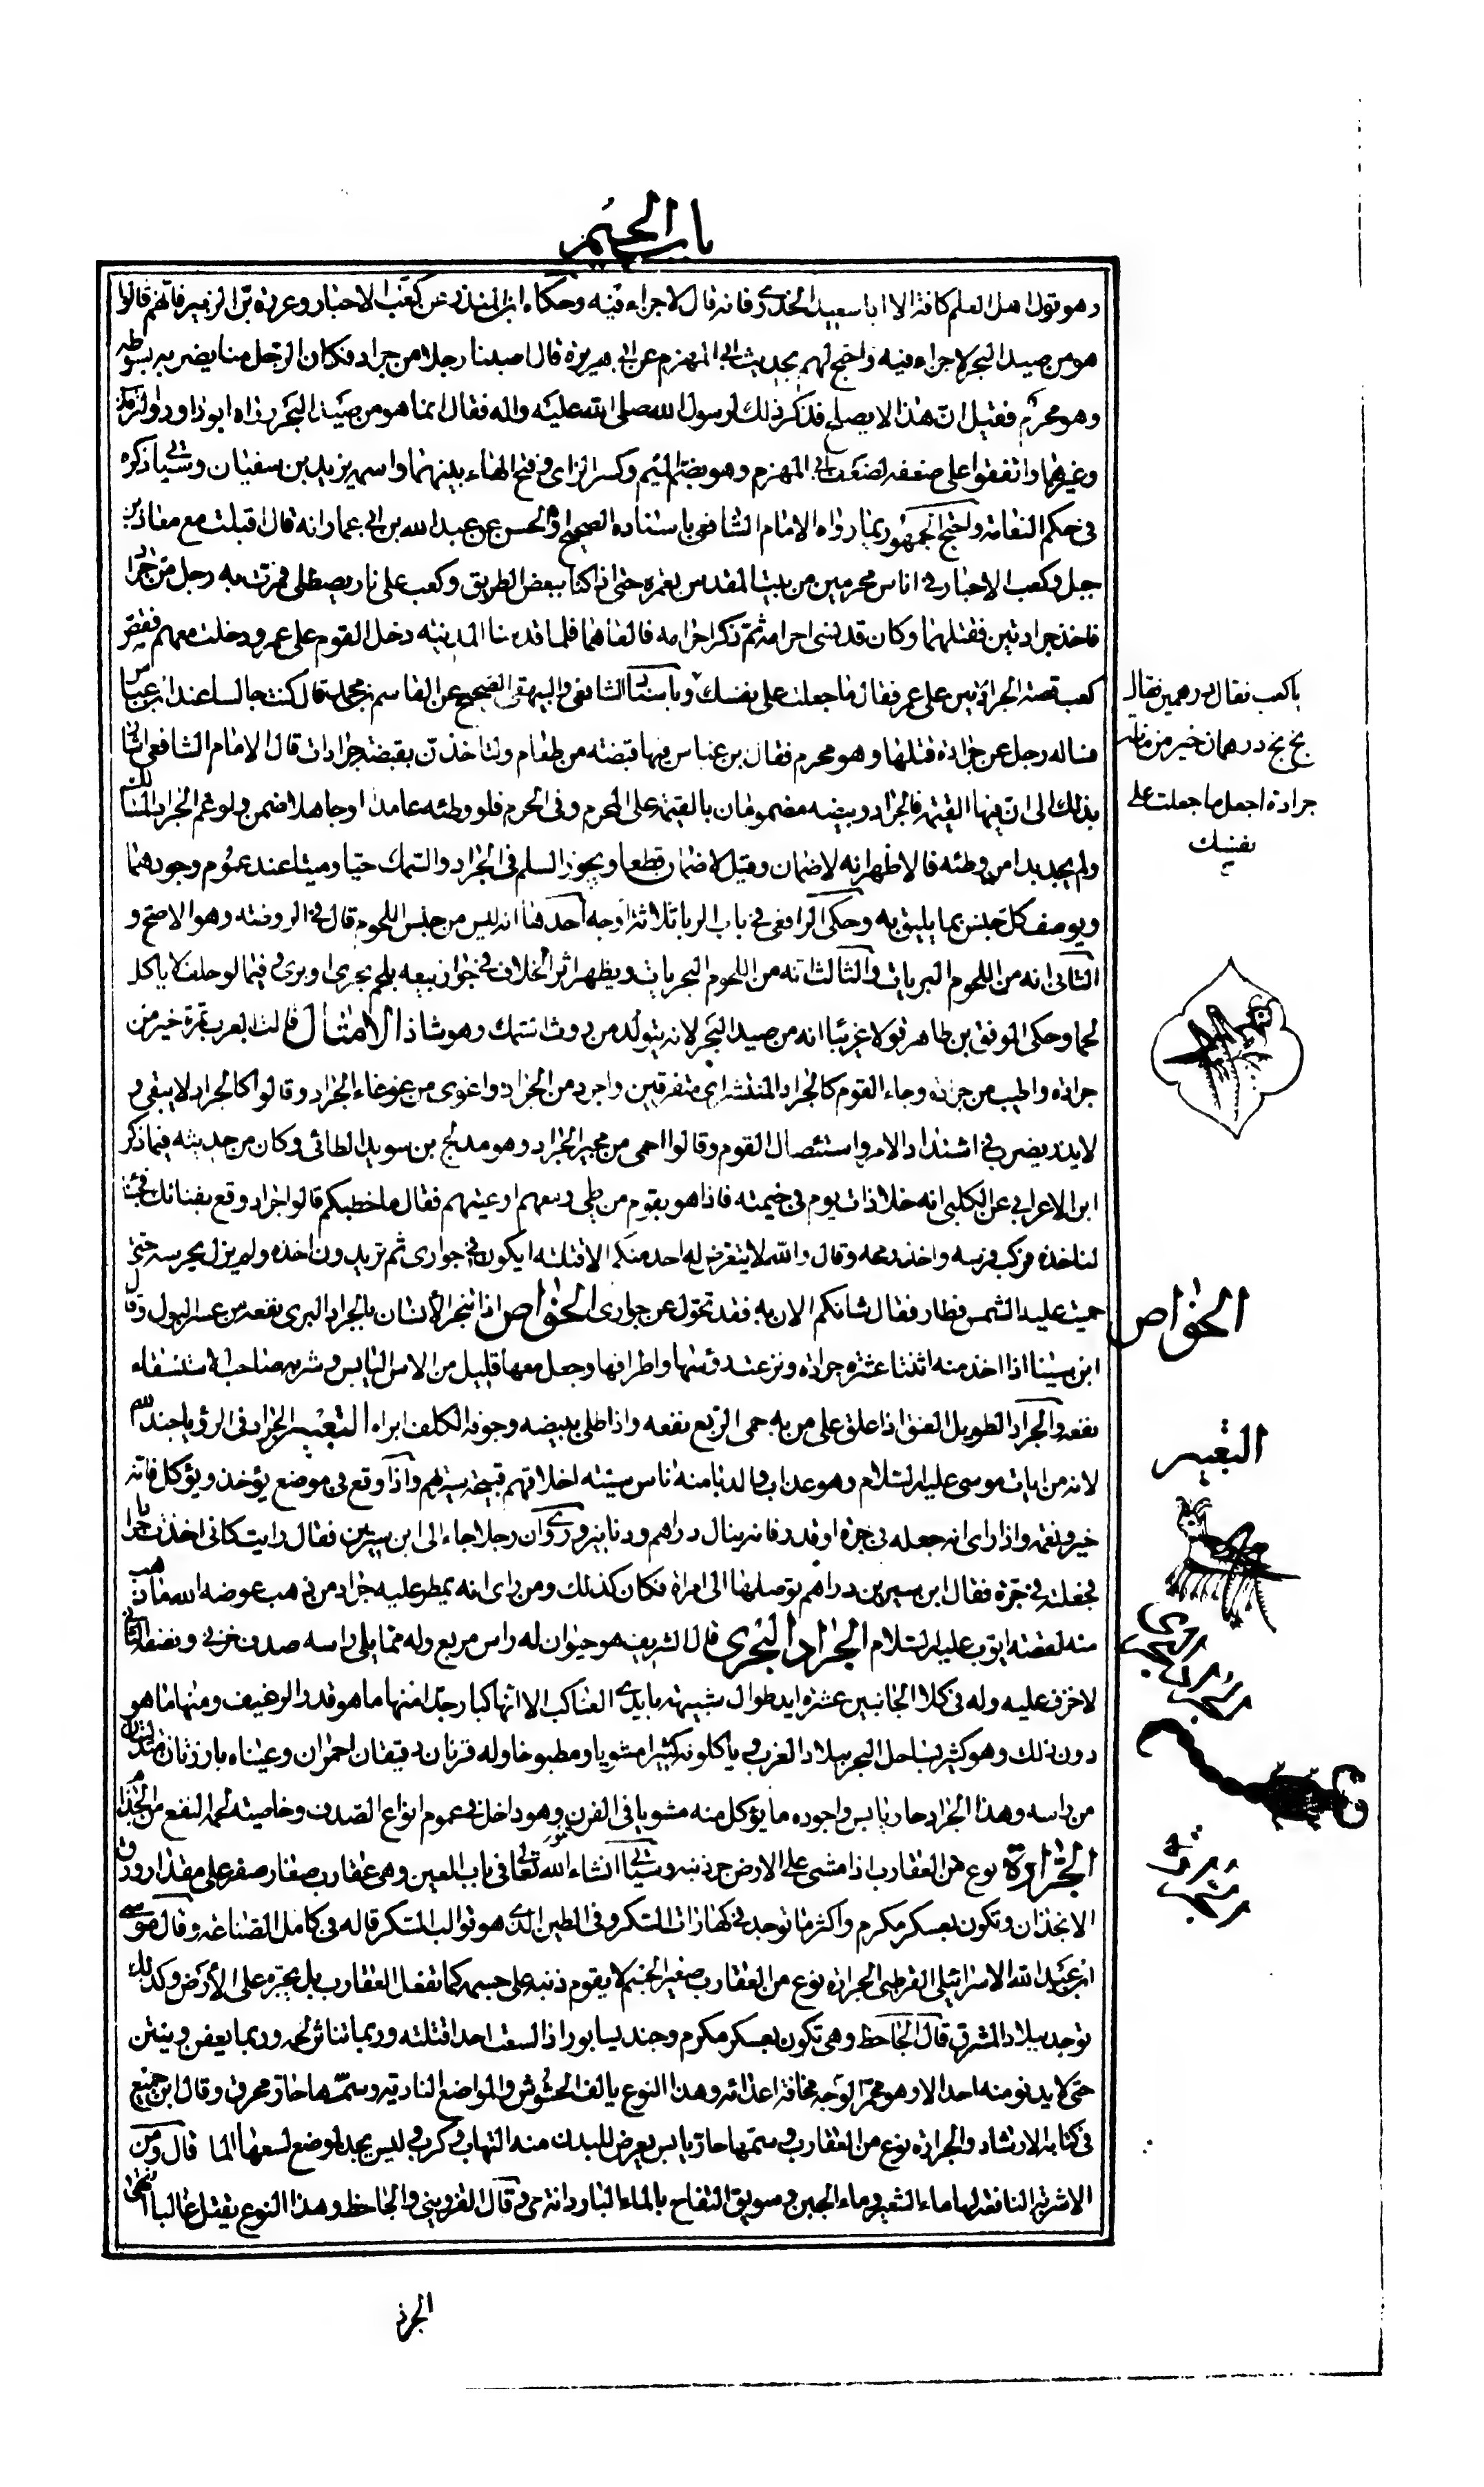 باب الجيم
وهو قول اهل العلم كافة الا ابا سعيد الخدري فانه قال لا جزاء فيه وحكاه ابن المنذر عن كعب الاحبار وعروة بن الزبير فانهم قالوا
هو من صيد البحر لا جزاء فيه واحتج لهم بحديث ابي المهزم عن ابي هريرة قال اصبنا رجلا من جراد فكان الرجل منا يضربه بسوطه
وهو محرم فقيل ان هذا لا يصلح فذكر ذلك لرسول الله صلى الله عليه واله فقال انما هو من صيد البحر رواه ابو داود والترمذي
وغيرهما واتفقوا على ضعفه لضعف ابي المهزم وهو بضم الميم وكسر الزاى وفتح الهاء بينهما واسمه يزيد بن سفيان وسياتي ذكره
في حكم النعامة واحتج الجمهور بما رواه الامام الشافعي باسناده الصحيح او الحسن عن عبد الله بن ابي عمار انه قال اقبلت مع معاذ بن
جبل وكعب الاحبار في اناس محرمين من بيت المقدس بعمره حتى اذا كنا ببعض الطريق وكعب على نار يصطلى فمرت به رجل من جراد
فاخذ جرادتين فقتلهما وكان قد نسى احرامه ثم ذكر احرامه فالقاهما فلما قدمنا المدينة دخل القوم على عمر ودخلت معهم فقص
كعب قصة الجرادتين على عمر فقال ما جعلت على نفسك وباسناد الشافعي والبيهقي الصحيح عن القاسم بن محمد قال كنت جالسا عند ابن عباس
فساله رجل عن جرادة قتلها وهو محرم فقال بن عباس فيها قبضة من طعام ولتاخذن بقبضة جرادات قال الامام الشافعي اشار
بذلك الى ان فيها القيمة فالجراد وبيضه مضمونان بالقيمة على المحرم وفي الحرم فلو وطئه عامدا او جاهلا ضمن ولو عم الجراد المسالك
ولم يجد بدا من وطئه فالاظهر انه لا ضمان وقيل لا ضمان قطعا ويجوز السلم في الجراد والسمك حيا وميتا عند عموم وجودهما
ويوصف كل جنس بما يليق به وحكى الرافعي في باب الربا ثلاثة اوجه احدها انه ليس من جنس اللحوم قال في الروضة وهو الاصح و
الثاني انه من اللحوم البريات والثالث انه من اللحوم البحريات ويظهر اثر الخلاف في جواز بيعه بلحم بحري او بري وفيما لو حلف لا ياكل
لحما وحكى الموفق بن طاهر قولا غريبا انه من صيد البحر لانه يتولد من روث السمك وهو شاذ الامثال قالت العرب تمرة خير من
جرادة واطيب من جرادة وجاء القوم كالجراد المنتشر اي متفرقين واجرد من الجراد واغوى من غوغاء الجراد وقالوا كالجراد لا يبقى و
لا يذر يضرب في اشتداد الامر واستئصال القوم وقالوا احمى من مجير الجراد وهو مدلج بن سويد الطائي وكان من حديثه فيما ذكر
ابن الاعرابي عن الكلبي انه خلا ذات يوم في خيمته فاذا هو بقوم من طي ومعهم اوعيتهم فقال ما خطبكم قالوا جراد وقع بفنائك فجئنا
لناخذه فركب فرسه واخذ رمحه وقال والله لا يتعرض له احد منكم الا قتلته ايكون في جواري ثم تريدون اخذه ولم يزل يحرسه حتى
حميت عليه الشمس فطار فقال شانكم الان به فقد تحول عن جواري الخواص اذا تبخر الانسان بالجراد البري نفعه من عسر البول وقال
ابن سينا اذا اخذ منه اثنتا عشرة جرادة ونزعت رؤسها واطرافها وجعل معها قليل من الاس اليابس وشربه صاحب الاستسقاء
نفعه والجراد الطويل العنق اذا علق على من به حمى الربع نفعه واذا طلى ببيضه وجوفه الكلف ابراه التعبير الجراد في الرؤيا جند لله
لانه من ايات موسى عليه السلام وهو عذاب والدبا منه اناس سيئة اخلاقهم قبيحة سيرتهم واذا وقع في موضع يؤخذ ويؤكل فانه
خير ونعمة واذا راى انه جعله في جرة او قدر فانه ينال دراهم ودنانير وروي ان رجلا جاء الى ابن سيرين فقال رايت كاني اخذت جرادا
فجعلته في جرة فقال ابن سيرين دراهم توصلها الى امراة فكان كذلك ومن راى انه يمطر عليه جراد من ذهب عوضه الله ما ذهب
منه لقصة ايوب عليه السلام الجراد البحري قال الشريف هو حيوان له راس مربع وله مما يلي راسه صدف خزفي ونصفه الثاني
لا خزف عليه وله في كلا الجانبين عشرة ايد طوال شبيهة بايدي العناكب الا انها كبار جدا منها ما هو قدر الرغيف ومنها ما هو
دون ذلك وهو كثير بساحل البحر ببلاد الغرب وياكلونه كثيرا مشويا ومطبوخا وله قرنان دقيقان احمران وعيناه بارزتان متدليتان
من راسه وهذا الجراد حار يابس واجوده ما يؤكل منه مشويا في الفرن وهو داخل في عموم انواع الصدف وخاصيته لحمه النفع من الجذام
الجرارة نوع من العقارب اذا مشى على الارض جر ذنبه وسياتي انشاء الله تعالى في باب العين وهي عقارب صغار صفر على مقدار ورق
الانجذان وتكون بعسكر مكرم واكثر ما توجد في كهاذات السكر وفي الطين الذي هو قوالب السكر قاله في كامل الصناعة وقال موسى
ابن عبيد الله الاسرائيلي القرطبي الجرارة نوع من العقارب صغير الجسم لا يقوم ذنبه على جسمه كما تفعل العقارب بل يجره على الارض وكذلك
توجد ببلاد المشرق قال الجاحظ وهي تكون بعسكر مكرم وجنديسابور اذا لسعت احدا قتلته وربما تناثر لحمه وربما يعفن وينتن
حتى لا يدنو منه احد الا وهو مخمر الوجه مخافة اعدائه وهذا النوع يالف الحشوش والمواضع النادية وسمها حار محرق وقال ابن جميع
في كتابه الارشاد والجرارة نوع من العقارب وسمها حار يابس يعرض للبدن منه التهاب وكرب وليس يجد لموضع لسعها الما قال ومن
الاشربة النافعة لها ماء الشعير وماء الجبن وسويق التفاح بالماء البارد انتهى وقال القزويني والجاحظ وهذا النوع يقتل غالبا انتهى
يا كعب نقال درهمين فقال
بخ بخ درهمان خير من مائة
جرادة اجعل ما جعلت على
نفسك
الخواص
التعبير
الجراد البحري
الجرذ